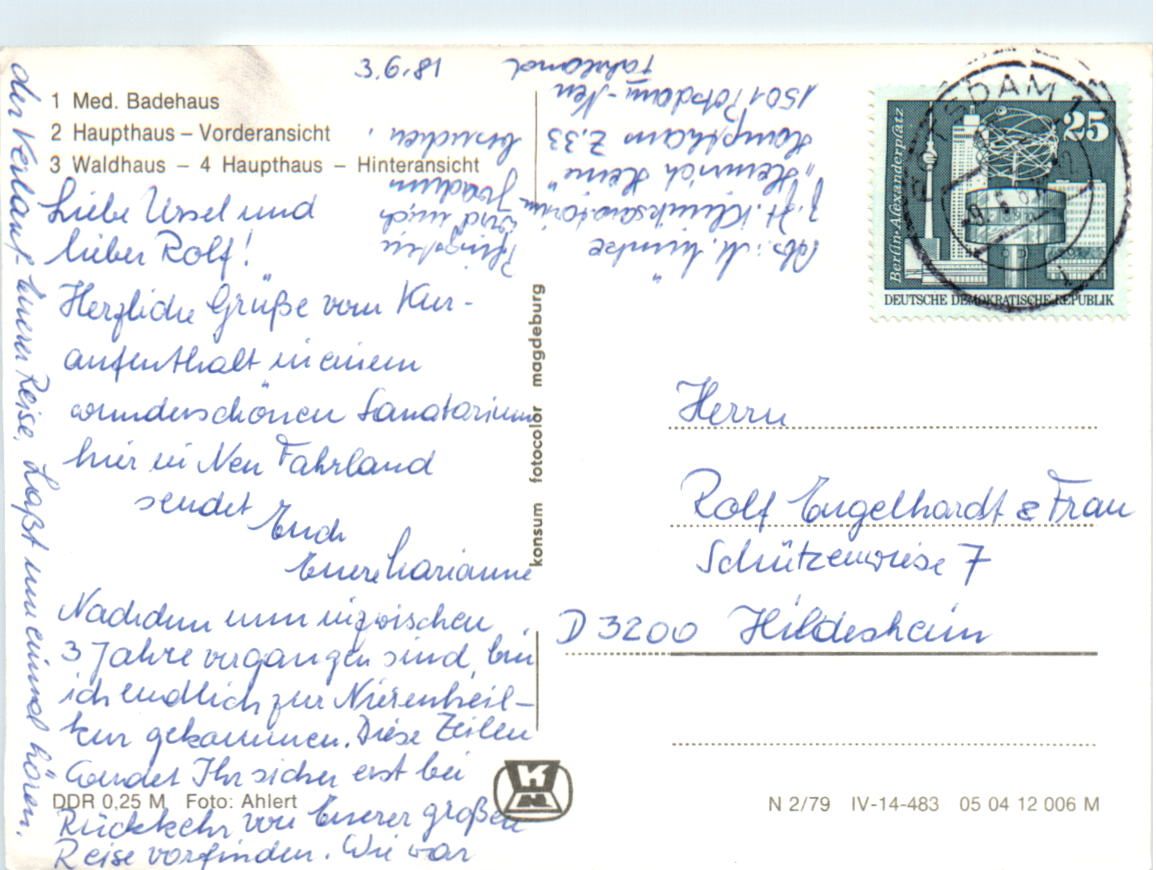 3.6.81
1 Med. Badehaus
2 Haupthaus – Vorderansicht
3 Waldhaus – 4 Haupthaus – Hinteransicht
Liebe Ursel und
lieber Rolf!
Herzliche Grüße vom Kur-
aufenthalt in einem
wunderschönen Sanatorium
hier in Neu Fahrland
sendet
Euch
Euere Marianne
Nachdem nun inzwischen
3 Jahre vergangen sind, bin
ich endlich zur Nierenheil-
kur gekommen. Diese Zeilen
werdet Ihr sicher erst bei
Rückkehr von Euerer großen
Reise vorfinden. Wie war
der Verlauf Euerer Reise. Laßt nun einmal hören.
Pfingsten
wird mich
Joachim
besuchen.
Abs: M.
z. Zt. Kliniksanatorium
"Heinrich Heine"
Haupthaus Z. 33
1501 Potsdam-Neu
Fahrland
konsum fotocolor magdeburg
DDR 0,25 M Foto: Ahlert
KN
Berlin-Alexanderplatz
25
DEUTSCHE DEMOKRATISCHE REPUBLIK
POTSDAM 1
Herrn
Rolf Engelhardt & Frau
Schützenwiese 7
D 3200 Hildesheim
N 2/79 IV-14-483 05 04 12 006 M